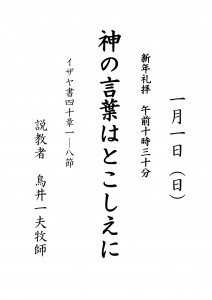 一月一日（日）
新年礼拝　午前十時三十分
神の言葉はとこしえに
イザヤ書四十章一―八節
説教者　鳥井一夫牧師